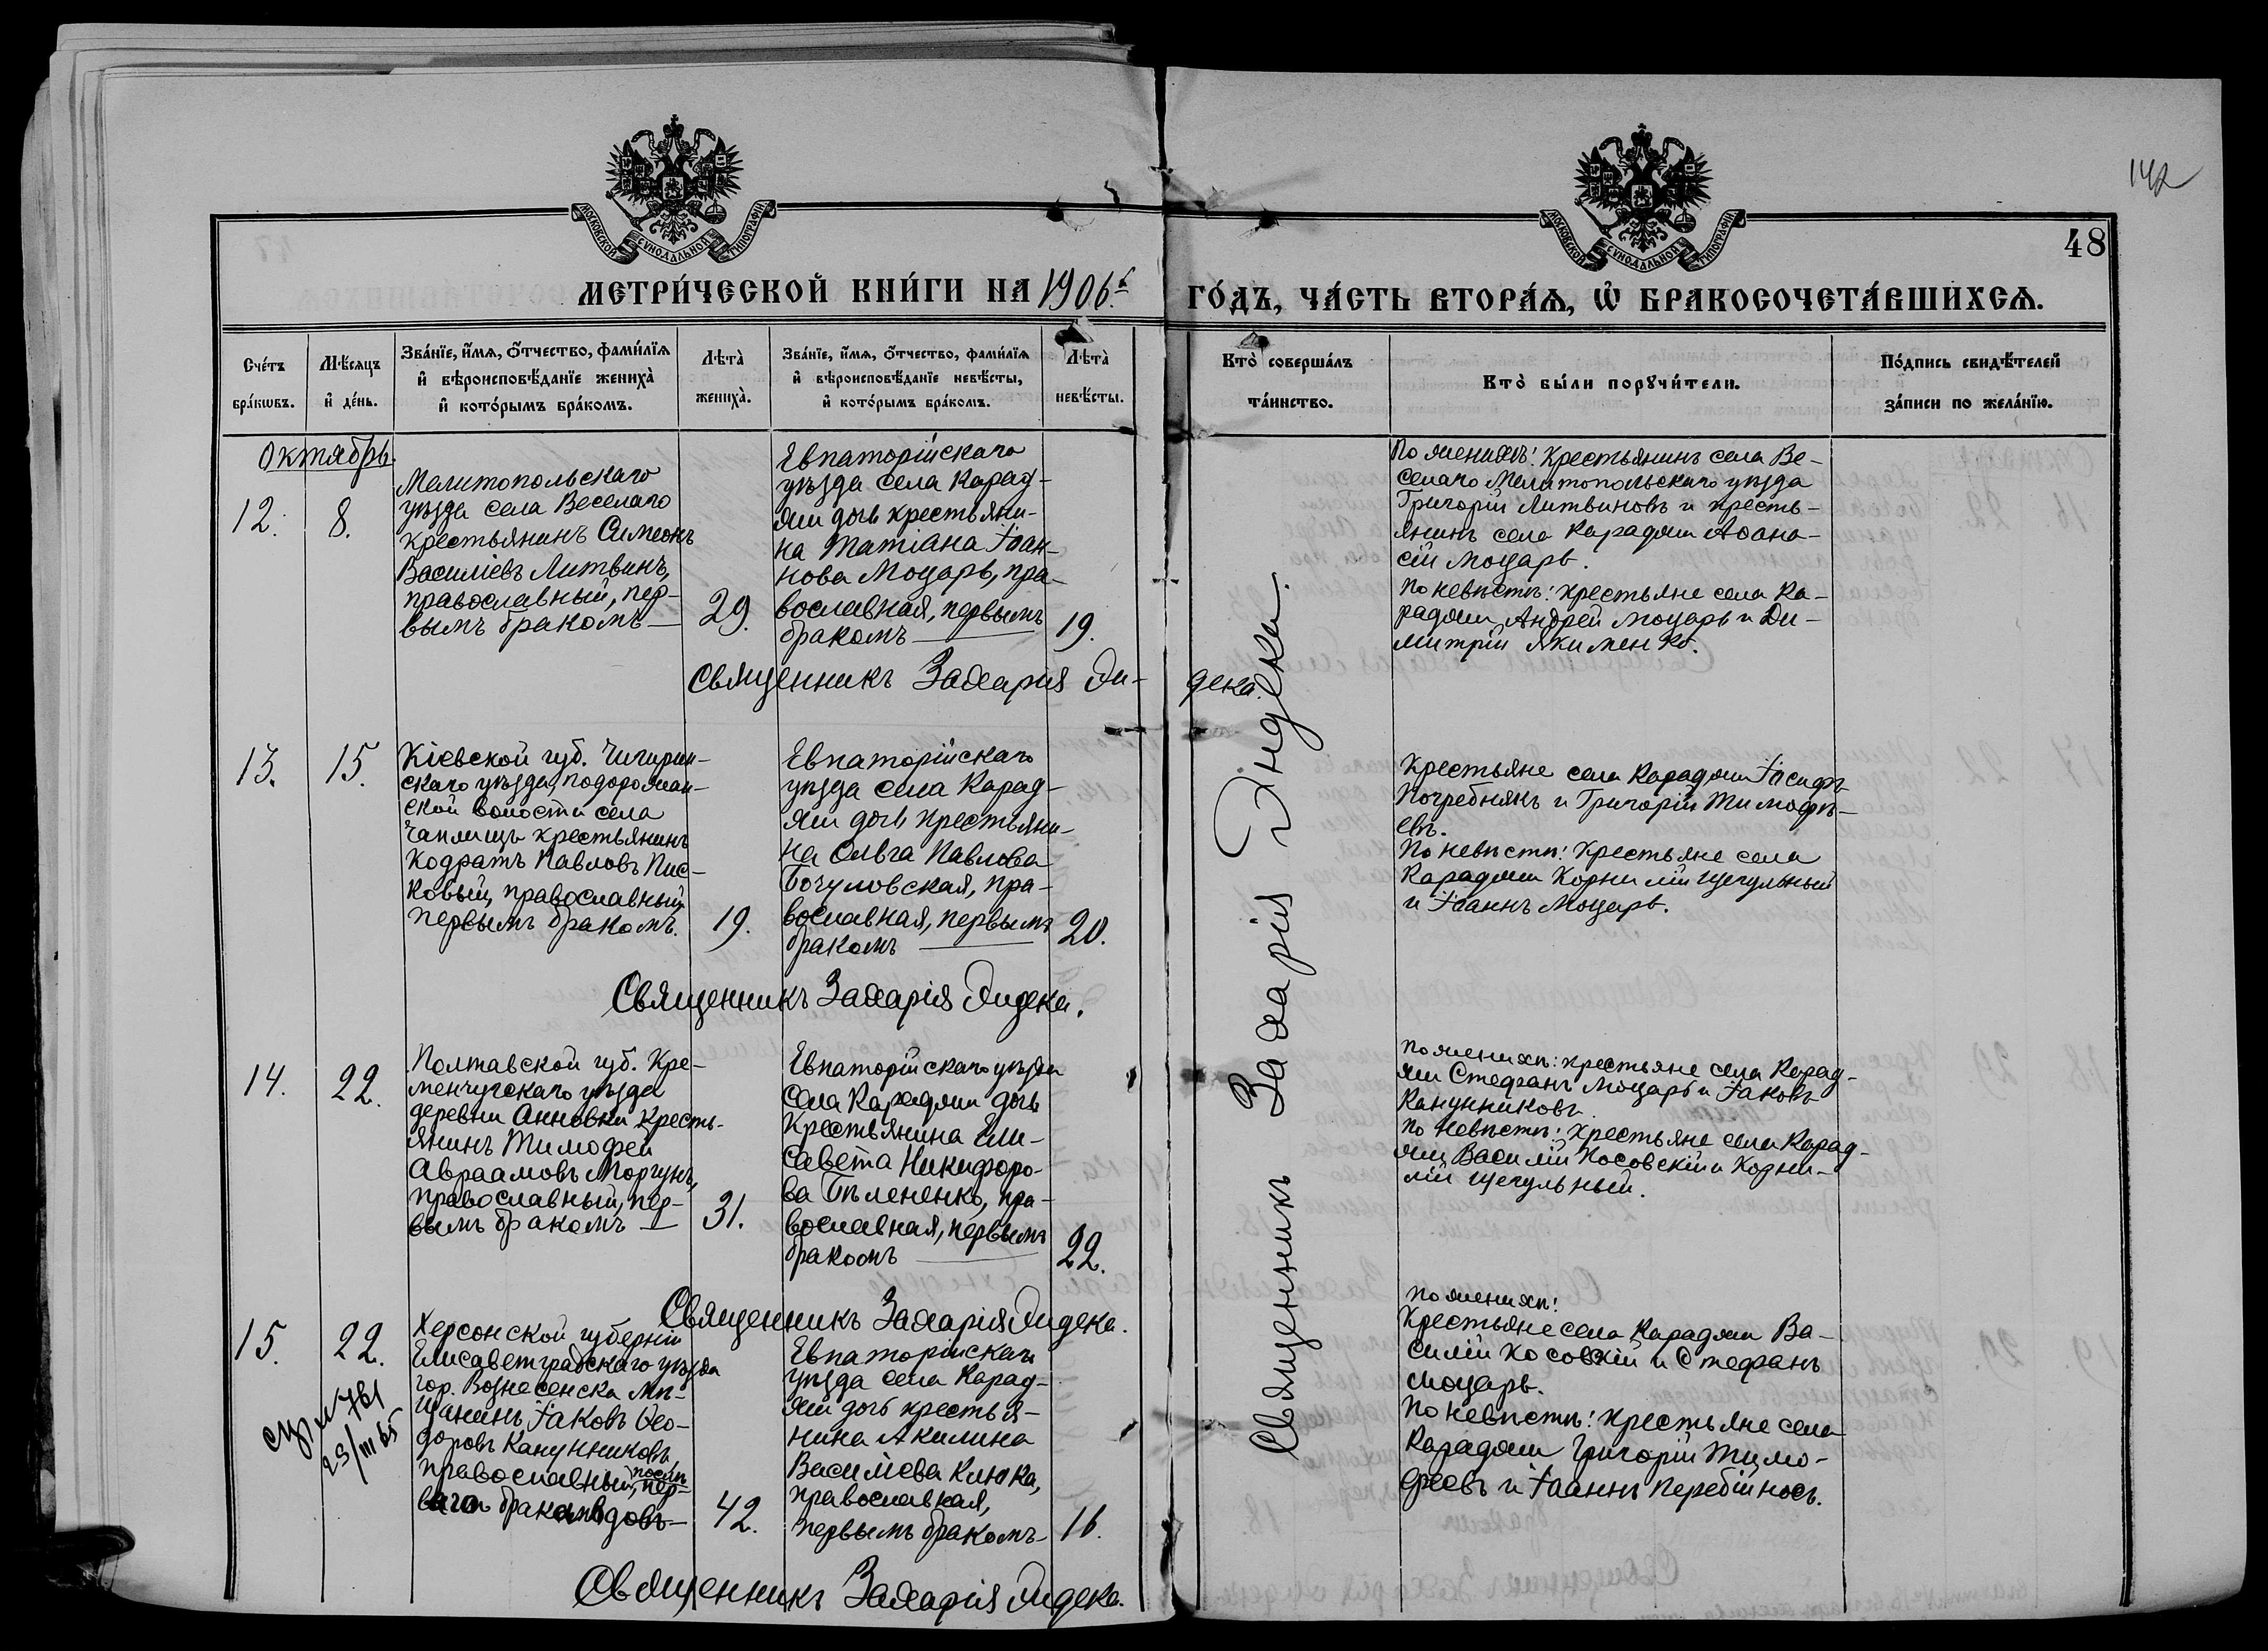 142
48
МОСКОВСКОЙ СѴНОДАЛЬНОЙ ТИПОГРАФІИ
МОСКОВСКОЙ СѴНОДАЛЬНОЙ ТИПОГРАФІИ
МЕТРИ́ЧЕСКОЙ КНИ́ГИ НА 1906 й ГО́ДЪ, ЧА́СТЬ ВТОРА́Ѧ, Ѡ҆ БРАКОСОЧЕТА́ВШИХСѦ.
Сче́тъ бра́кѡвъ.
Мѣ́сѧцъ и҆ де́нь.
Зва́нїе, и҆́мѧ, ѻ҆́тчество, фами́лїѧ
и҆ вѣроисповѣ́данїе жениха̀
и҆ кото́рымъ бра́комъ.
Лѣта̀ жениха̀.
Зва́нїе, и҆́мѧ, ѻ҆́тчество, фами́лїѧ
и҆ вѣроисповѣ́данїе невѣ́сты,
и҆ кото́рымъ бра́комъ.
Лѣта̀ невѣ́сты.
Кто̀ соверша́лъ та́инство.
Кто̀ бы́ли порꙋчи́тели.
По́дпись свидѣ́телей за́писи по жела́нїю.
Октябрь.
12.
8.
Мелитопольскаго
уѣзда села Веселаго
крестьянинъ Симеонъ
Василіевъ Литвинъ,
православный, пер-
вымъ бракомъ —
29.
Евпаторійскаго
уѣзда села Карад-
жи дочь крестьяни-
на Татіана Іоан-
нова Моцарь, пра-
вославная, первымъ
бракомъ —
19.
По женихѣ: Крестьянинъ села Ве-
селаго Мелитопольскаго уѣзда
Григорій Литвиновъ и кресть-
янинъ села Караджи Аѳана-
сій Моцарь.
По невѣстѣ: крестьяне села Ка-
раджи Андрей Моцарь и Ди-
митрій Якименко.
Священникъ Захарія Ди-
дека.
13.
15.
Кіевской губ. Чигирин-
скаго уѣзда, Подорожан-
ской волости села
Чаплищъ крестьянинъ
Кодратъ Павловъ Пис-
ковый, православный
первымъ бракомъ.
19.
Евпаторійскаго
уѣзда села Карад-
жи дочь крестьяни-
на Ольга Павлова
Бочуловская, пра-
вославная, первымъ
бракомъ —
20.
Крестьяне села Караджи Іосифъ
Погребнякъ и Григорій Тимофѣ-
евъ.
По невѣстѣ: Крестьяне села
Караджи Корнилій Щегульный
и Іоаннъ Моцарь.
Священникъ Захарія Дидека.
14.
22.
Полтавской губ. Кре-
менчугскаго уѣзда
деревни Анновки кресть-
янинъ Тимофей
Авраамовъ Моргунъ,
православный, пер-
вымъ бракомъ —
31.
Евпаторійскаго уѣзда
села Караджи дочь
Крестьянина Ели-
савета Никифоро-
ва Бѣлененко, пра-
вославная, первымъ
бракомъ —
22.
По женихѣ: крестьяне села Карад-
жи Стефанъ Моцарь и Іаковъ
Канунниковъ.
По невѣстѣ: крестьяне села Карад-
жи Василій Косовскій и Корни-
лій Щегульный.
Священникъ Захарія Дидека.
15.
22.
23/III 65
Херсонской губерніи
Елисаветградскаго уѣзда
гор. Вознесенска мѣ-
щанинъ Іаковъ Ѳео-
доровъ Канунниковъ
православный, послѣ пер-
ваго брака вдовъ —
42.
Евпаторійскаго
уѣзда села Карад-
жи дочь крестья-
нина Акилина
Василіева Клюка,
православная,
первымъ бракомъ —
16.
По женихѣ:
Крестьяне села Караджи Ва-
силій Косовскій и Стефанъ
Моцарь.
По невѣстѣ: крестьяне села
Караджи Григорій Тимо-
феевъ и Іоаннъ Перебійносъ.
Священникъ Захарія Дидека.
Священникъ Захарія Дидека.